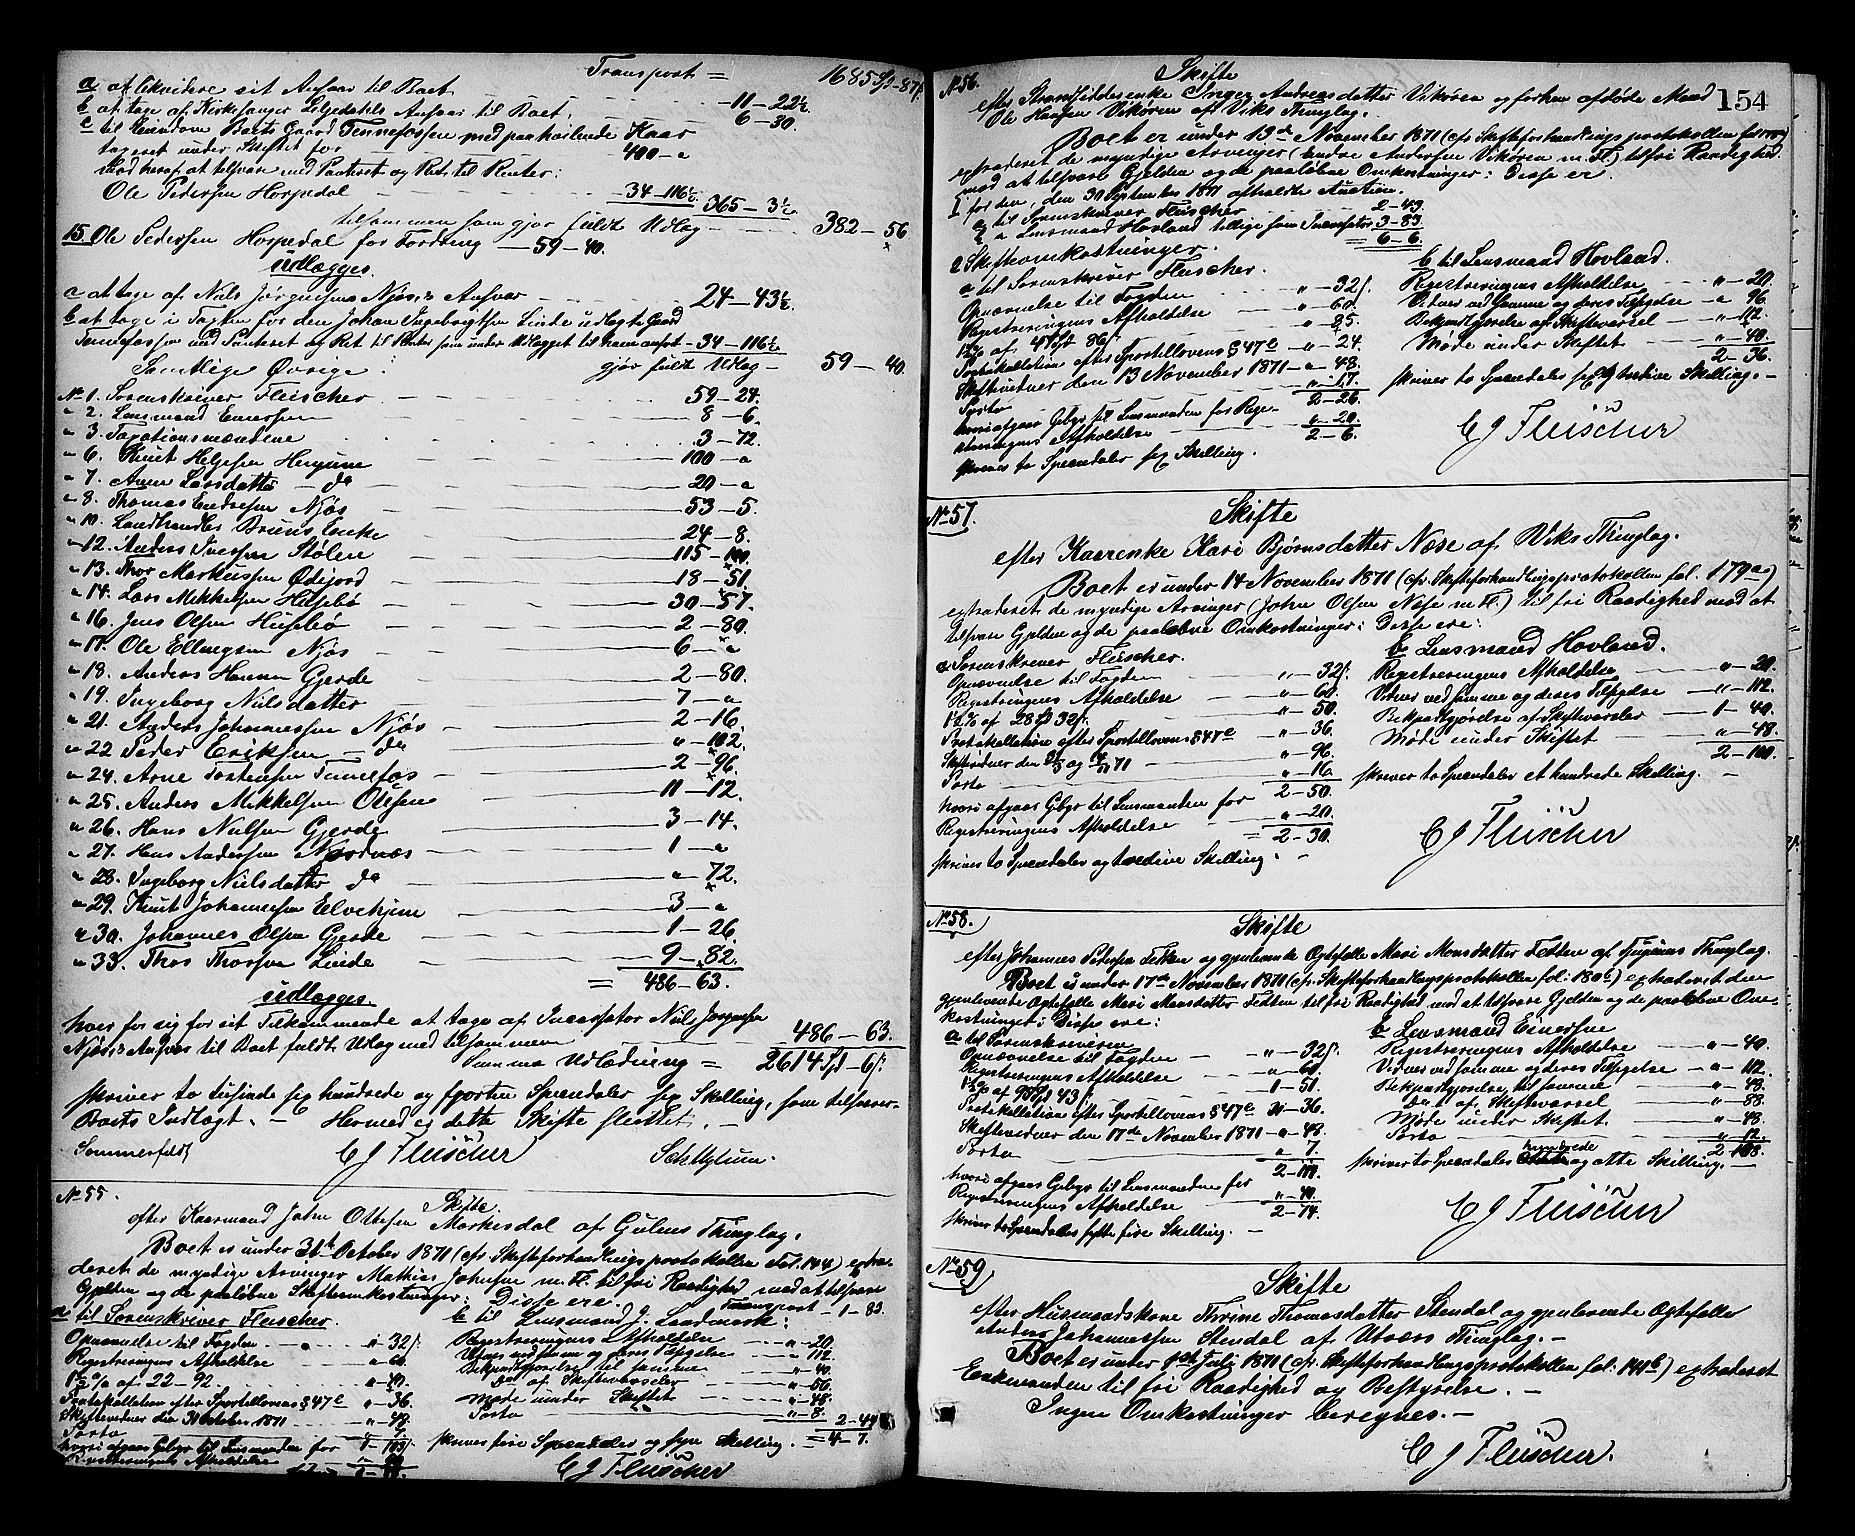 Transport = 1685 Spd - 87 ß
a at likvidere sit Ansvar til Boet - 11 - 22½
b at tage af Kirkesanger Liljedahls Ansvar til Boet, 6 - 30.
c til Eiendom Boets Gaard Tennefossen med paahvilende Kaar
tageret under Skiftet for 400 - "
mod heraf at tilsvare med Panteret og Ret til Renter:
Ole Pedersen Hopedal 34 - 116½ 365 - 3½
tilsammen som gjør fuldt Udlæg - 382 - 56
15. Ole Pedersen Hopedal for Fordring - 59 - 40.
udlægges.
a at tage af Niels Jørgensens Njøs's Ansvar 24 - 43½
b at tage i Taxten for den Johan Ingebrigtsen Linde udlagte Gaard
Tennefossen med Panteret og Ret til Renter som under Udlægget til ham anført - 34 - 116½
gjør fuldt Udlæg - 59 - 40.
Samtlige Øvrige:
No 1. Sorenskriver Fleischer 59 - 24.
" 2. Lensmand Einersen 8 - 6.
" 3. Taxationsmændene 3 - 72.
" 6. Knut Helgesen 100 - "
" 7. Anne Larsdatter - do 20 - "
" 8. Thomas Endresen Njøs 53 - 5.
" 10. Landhandler Bruns Enke 24 - 8.
" 12. Anders Iversen Stølen 115 - 100.
" 13. Thor Markussen Ødejord 18 - 51.
" 14. Lars Mikkelsen Husebø 30 - 57.
" 16. Jens Olsen Husebø 2 - 80.
" 17. Ole Ellingsen Njøs 6 - "
" 18. Anders Hansen Gjerde 2 - 80.
" 19. Ingeborg Nielsdatter 7 - "
" 21. Anders Johannessen Njøs 2 - 16.
" 22 Peder Eriksen - do " - 102.
" 24. Arne Torstensen Tennefos 2 - 96.
" 25. Anders Mikkelsen 11 - 12.
" 26. Hans Nielsen Gjerde 3 - 14.
" 27. Hans Andersen Nordnæs 1 - "
" 28. Ingeborg Nielsdatter do " - 72.
" 29. Knut Johannessen Eelvehjem 3 - "
" 30. Johannes Olsen Gjerde 1 - 26.
" 33. Thor Thorsen Linde 9 - 82.
= 486 - 63.
udlægges.
hver for sig for sit Tilkommende at tage af Incassator Niels Jørgensen
Njøs's Ansvar til Boet fuldt Udlæg med tilsammen 486 - 63.
Summa Udlodning = 2614 Spd - 6 ß.
skriver to tusinde sex hundrede og fjorten Speciedaler sex Skilling, som tilsvarer
Boets Indtægt. - Hermed er dette Skifte sluttet. -
Sommerfeldt CJ Fleischer
No 55. Skifte
efter Kaarmand John Ottesen Markesdal af Gulens Thinglag,
Boet er under 31te October 1871 (cfr. Skifteforhandlingsprotokollen Fol. 144) extra-
deret de myndige Arvinger Mathias Johnsen m. Fl. til fri Raadighed med at tilsvare
Gjelden og de paaløbne Skifteomkostninger: Disse ere: Transport - 1 - 83.
a til Sorenskriver Fleischer. b til Lensmand J. Landmark:
Opnævnelse til Fogden " - 32 ß. Registreringens Afholdelse " - 20
Registreringens Afholdelse " - 60. Vidner ved samme og deres Tilsigelse " - 112
1½% af 22 - 92 " - 40. Bekjendtgjørelse til samme " - 40.
Protokollation efter Sportellovens § 47 c " - 36. do af Skiftevarsler " - 56
Skiftevidner den 31 October 1871 " - 48 Møde under Skiftet " - 48.
Porto Porto " - 8. 2 - 44
hvori afgaar Gebyr til Lensmanden for 1 - 103 skriver fire Speciedaler og syv Skilling. = 4 - 7.
Registreringens Afholdelse " - 20 CJ Fleischer
154
No 56. Skifte
efter Strandsidderenke Inger Andersdatter Vikøren og forhen afdøde Mand
Ole Hansen Vikøren af Viks Thinglag.
Boet er under 13de November 1871 (cfr. Skifteforhandlingsprotokollen
extraderet de myndige Arvinger (Endre Andersen Vikøren m. Fl.) til fri Raadighed
mod at tilsvare Gjelden og de paaløbne Omkostninger: Disse er
I for den, den 30 September 1871 afholdte Auction.
a til Sorenskriver Fleischer 2 - 49.
b " Lensmand Hovland tillige som Incassator 3 - 83
= 6 - 6.
2 Skifteomkostninger. b til Lensmand Hovland.
a til Sorenskriver Fleischer. Registreringens Afholdelse " - 20.
Opnævnelse til Fogden " - 32 ß. Vidner ved samme og deres Tilsigelse " - 96
Registreringens Afholdelse " - 60. Bekjendtgjørelse af Skiftevarsel " - 112.
1½% af 47 Spd 86 ß " - 85. Møde under Skiftet " - 48.
Protokollation efter Sportellovens § 47 c " - 24. 2 - 36.
Skiftevidner den 13 November 1871 - " - 48. skriver to Speciedaler sex og tredive Skilling. -
Porto " - 17.
2 - 26.
hvori afgaar Gebyr til Lensmanden for Regi-
streringens Afholdelse " - 20.
2 - 6.
skriver to Speciedaler sex Skilling. CJ Fleischer
No 57. Skifte
efter Kaarenke Kari Bjørnsdatter Nese af Viks Thinglag.
Boet er under 14 November 1871 (cfr. Skifteforhandlingsprotokollen fol. 179 a)
extraderet de myndige Arvinger (John Olsen Nese m. Fl.) til fri Raadighed mod at
tilsvare Gjelden og de paaløbne Omkostninger: Disse ere:
a Sorenskriver Fleischer. b Lensmand Hovland.
Opnævnelse til Fogden " - 32 ß. Registreringens Afholdelse " - 20.
Registreringens Afholdelse " - 60. Vidner ved samme og deres Tilsigelse " - 112.
1½% af 28 Spd 32 ß. " - 50. Bekjendtgjørelse af Skiftevarsler 1 - 40.
Protokollation efter Sportellovens § 47 c " - 36. Møde under Skiftet " - 48.
Skiftevidner den og 71 " - 96. 2 - 100.
Porto " - 16 skriver to Speciedaler et hundrede Skilling. -
hvori afgaar Gebyr til Lensmanden for 2 - 50.
Registreringens Afholdelse " - 20.
= 2 - 30.
skriver to Speciedaler og tredive Skilling. - CJ Fleischer
No 58. Skifte
efter Johannes Pedersen Fetten og gjenlevende Ægtefælle Mari Monsdatter Fetten af Tjugums Thinglag.
Boet er under 17de November 1871 (cfr. Skifteforhandlingsprotokollen fol. 180 b) extraderet den
gjenlevende Ægtefælle Mari Monsdatter Fetten til fri Raadighed mod at tilsvare Gjelden og de paaløbne Om-
kostninger: Disse ere: b Lensmand Einersen
a til Sorenskriveren Registreringens Afholdelse " - 40.
Opnævnelse til Fogden " - 32 ß. Vidner ved samme og deres Tilsigelse - " - 112.
Registreringens Afholdelse " - 60. Bekjendtgjørelse til samme " - 48.
1½% af 95 Spd 43 ß. 1 - 51. do af Skiftevarsel " - 88.
Protokollation efter Sportellovens § 47 c " - 36. Møde under Skiftet. " - 48.
Skiftevidner den 17de November 1871 - " - 48. Porto " - 12.
Porto " - 7. 2 - 108.
2 - 114. skriver to Speciedaler hundrede og otte Skilling. -
hvori afgaar Gebyr til Lensmanden for
Registreringens Afholdelse " - 40.
2 - 74.
skriver to Speciedaler sytti fire Skilling. - CJ Fleischer
No 59 Skifte
efter Husmandskone Thrine Thomasdatter Stendal og gjenlevende Ægtefælle
Anders Johannessen Stendal af Utvær Thinglag. -
Boet er under 1ste Juli 1871 (cfr. Skifteforhandlingsprotokollen fol. 141 b) extraderet
Enkemanden til fri Raadighed og Bestyrelse. -
Ingen Omkostninger beregnes. -
CJ Fleischer.